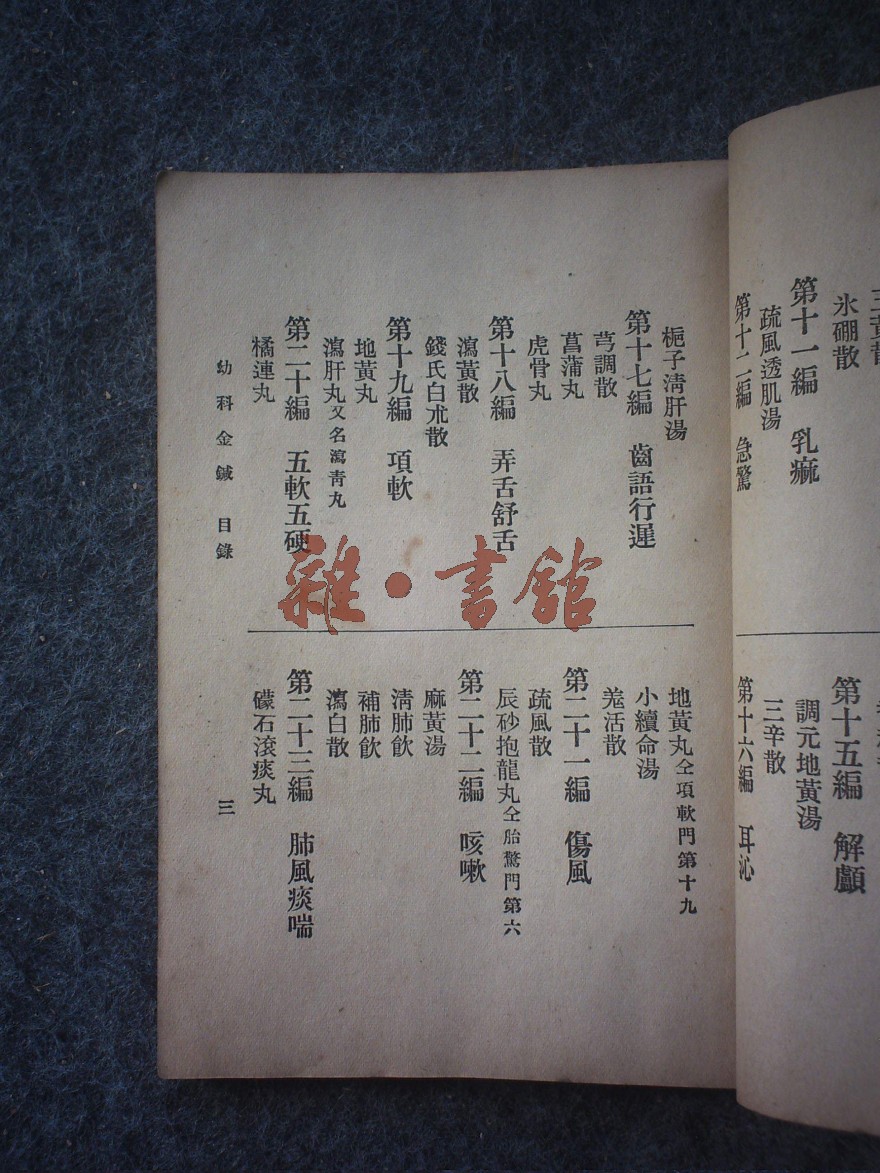 氷硼散
第十一編　乳癤
疏風透肌湯
第十二編　急驚
第十五編　解顱
調元地黃湯
三辛散
第十六編　耳沁
梔子淸肝湯
第十七編　齒語行遲
芎調散
菖蒲丸
虎骨丸
第十八編　弄舌舒舌
瀉黃散
錢氏白朮散
第十九編　項軟
地黃丸
瀉肝丸又名瀉靑丸
第二十編　五軟五硬
橘連丸
地黃丸仝項軟門第十九
小續命湯
羗活散
第二十一編　傷風
疏風散
辰砂抱龍丸仝胎驚門第六
第二十二編　咳嗽
麻黃湯
淸肺飮
補肺飮
瀉白散
第二十三編　肺風痰喘
礞石滾痰丸
幼科金鍼　目錄
三
雜·書館